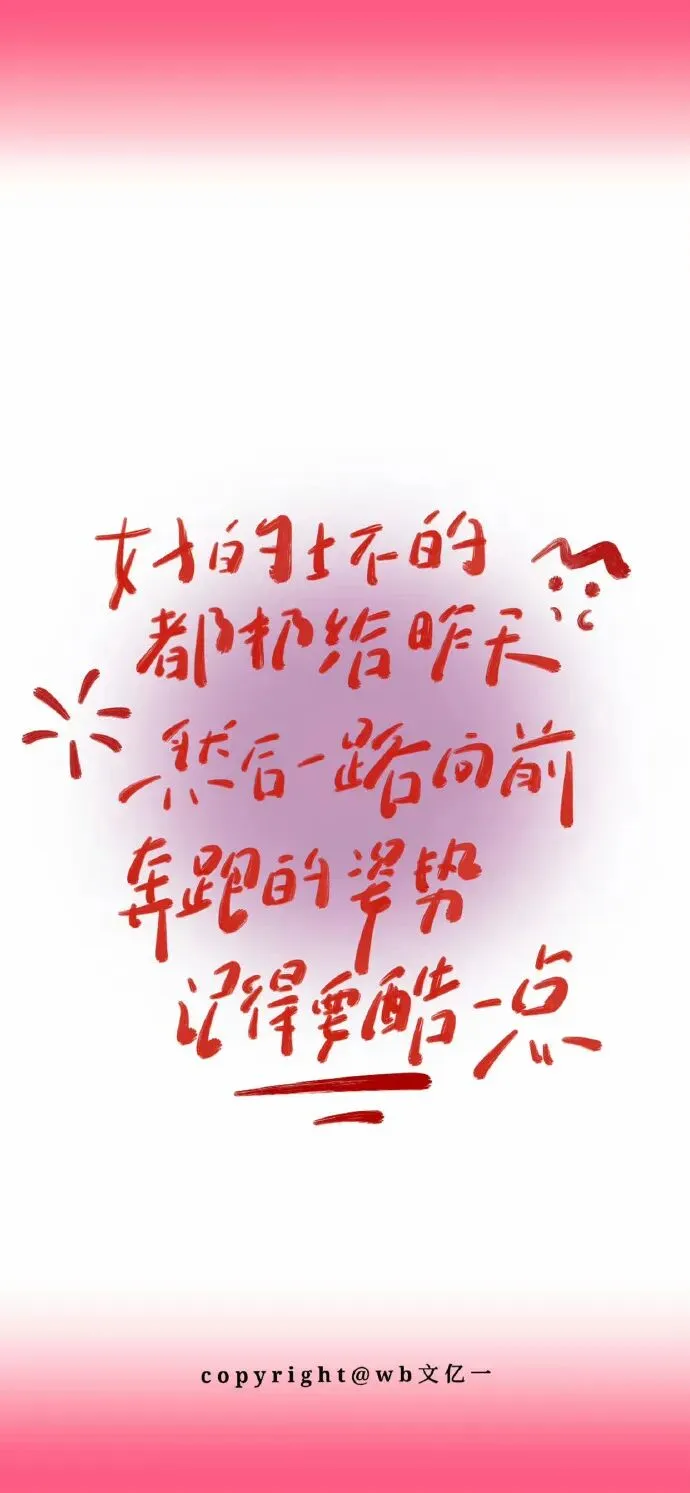 好的坏的
都扔给昨天
然后一路向前
奔跑的姿势
记得要酷一点
copyright@wb文亿一